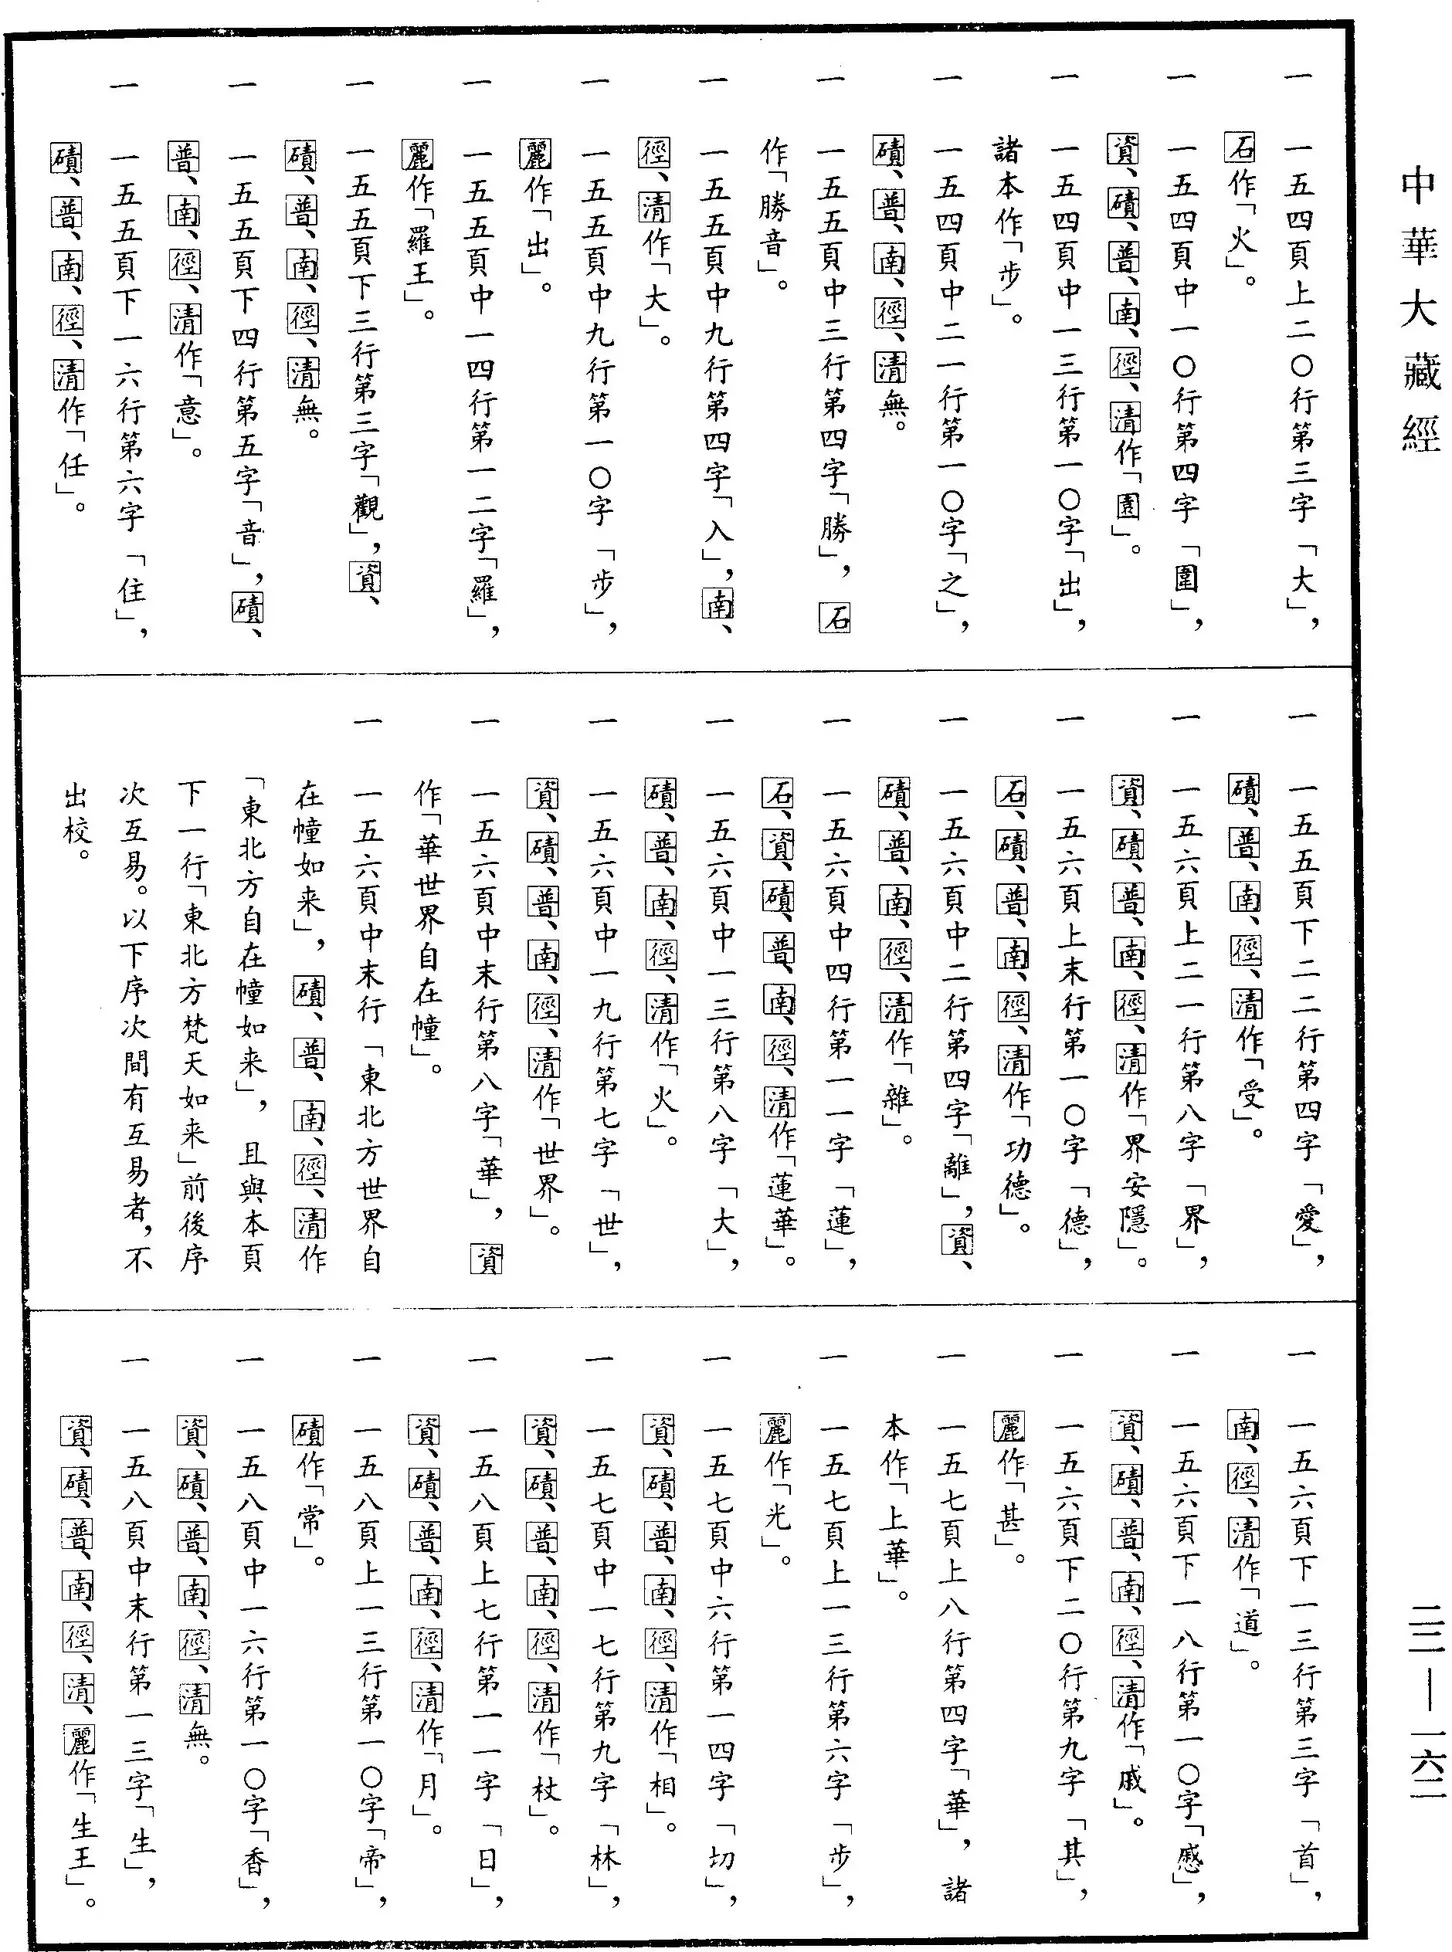 中華大藏經
一　一五四頁上二〇行第三字「大」，
石作「火」。
一　一五四頁中一〇行第四字「圍」，
資、磧、普、南、徑、清作「園」。
一　一五四頁中一三行第一〇字「出」，
諸本作「步」。
一　一五四頁中二一行第一〇字「之」，
磧、普、南、徑、清無。
一　一五五頁中三行第四字「勝」，石
作「勝音」。
一　一五五頁中九行第四字「入」，南、
徑、清作「大」。
一　一五五頁中九行第一〇字「步」，
麗作「出」。
一　一五五頁中一四行第一二字「羅」，
麗作「羅王」。
一　一五五頁下三行第三字「觀」，資、
磧、普、南、徑、清無。
一　一五五頁下四行第五字「音」，磧、
普、南、徑、清作「意」。
一　一五五頁下一六行第六字「住」，
磧、普、南、徑、清作「任」。
一　一五五頁下二二行第四字「愛」，
磧、普、南、徑、清作「受」。
一　一五六頁上二一行第八字「界」，
資、磧、普、南、徑、清作「界安隱」。
一　一五六頁上末行第一〇字「德」，
石、磧、普、南、徑、清作「功德」。
一　一五六頁中二行第四字「離」，資、
磧、普、南、徑、清作「雜」。
一　一五六頁中四行第一一字「蓮」，
石、資、磧、普、南、徑、清作「蓮華」。
一　一五六頁中一三行第八字「大」，
磧、普、南、徑、清作「火」。
一　一五六頁中一九行第七字「世」，
資、磧、普、南、徑、清作「世界」。
一　一五六頁中末行第八字「華」，資
作「華世界自在幢」。
一　一五六頁中末行「東北方世界自
在幢如来」，磧、普、南、徑、清作
「東北方自在幢如来」，且與本頁
下一行「東北方梵天如来」前後序
次互易。以下序次間有互易者，不
出校。
一　一五六頁下一三行第三字「首」，
南、徑、清作「道」。
一　一五六頁下一八行第一〇字「慼」，
資、磧、普、南、徑、清作「戚」。
一　一五六頁下二〇行第九字「其」，
麗作「甚」。
一　一五七頁上八行第四字「華」，諸
本作「上華」。
一　一五七頁上一三行第六字「步」，
麗作「光」。
一　一五七頁中六行第一四字「切」，
資、磧、普、南、徑、清作「相」。
一　一五七頁中一七行第九字「林」，
資、磧、普、南、徑、清作「杖」。
一　一五八頁上七行第一一字「日」，
資、磧、普、南、徑、清作「月」。
一　一五八頁上一三行第一〇字「帝」，
磧作「常」。
一　一五八頁中一六行第一〇字「香」，
資、磧、普、南、徑、清無。
一　一五八頁中末行第一三字「生」，
資、磧、普、南、徑、清、麗作「生王」。
二二—一六二